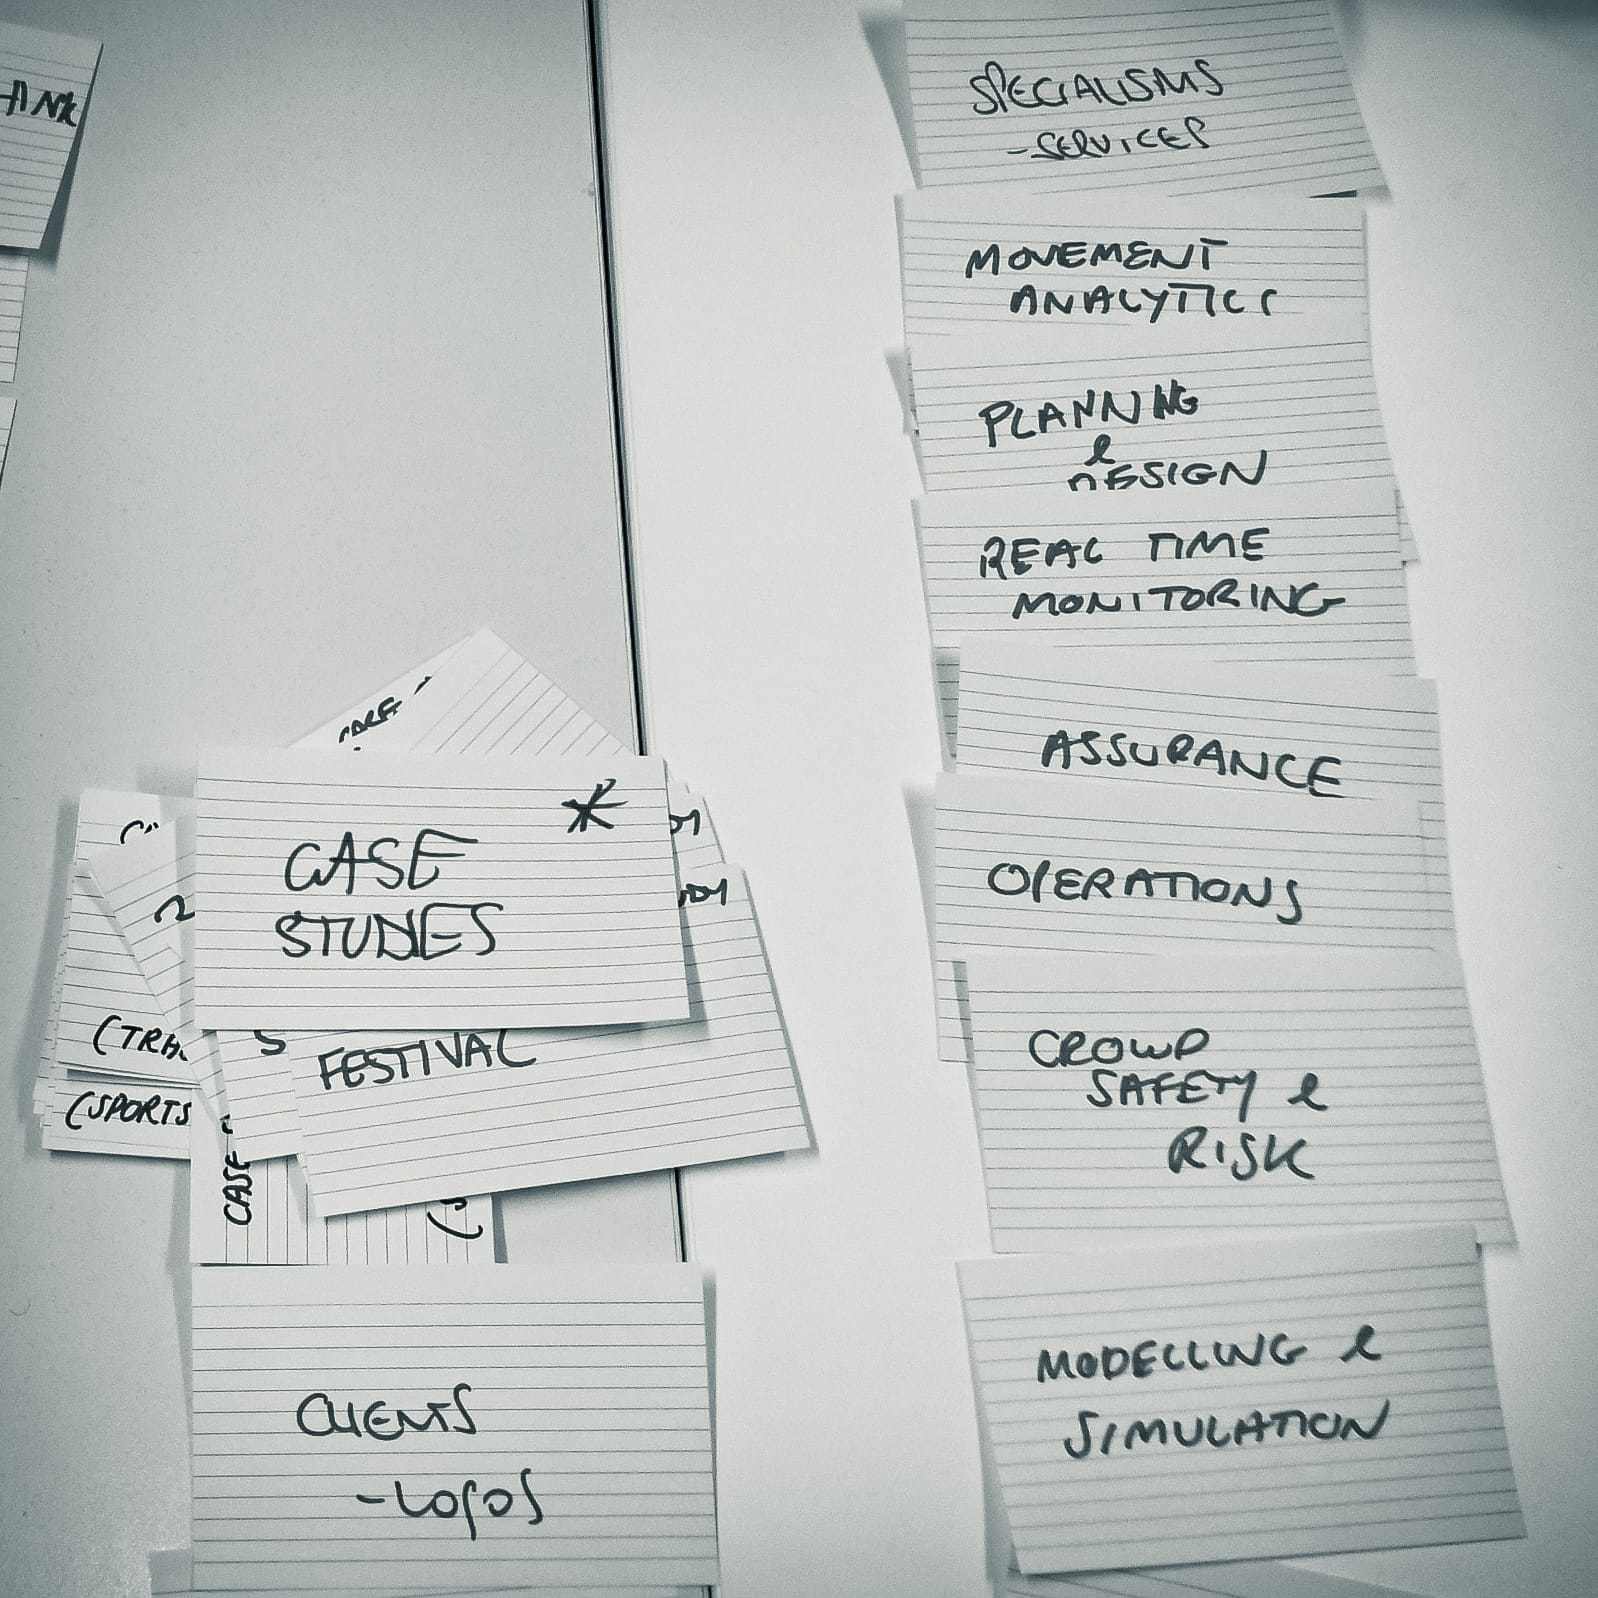 SPECIALISMS
- SERVICES
MOVEMENT
ANALYTICS
PLANNING
&
DESIGN
REAL TIME
MONITORING
ASSURANCE
OPERATIONS
CROWD
SAFETY &
RISK
MODELLING &
SIMULATION
*
CASE
STUDIES
FESTIVAL
(SPORTS
CASE
CLIENTS
- LOGOS